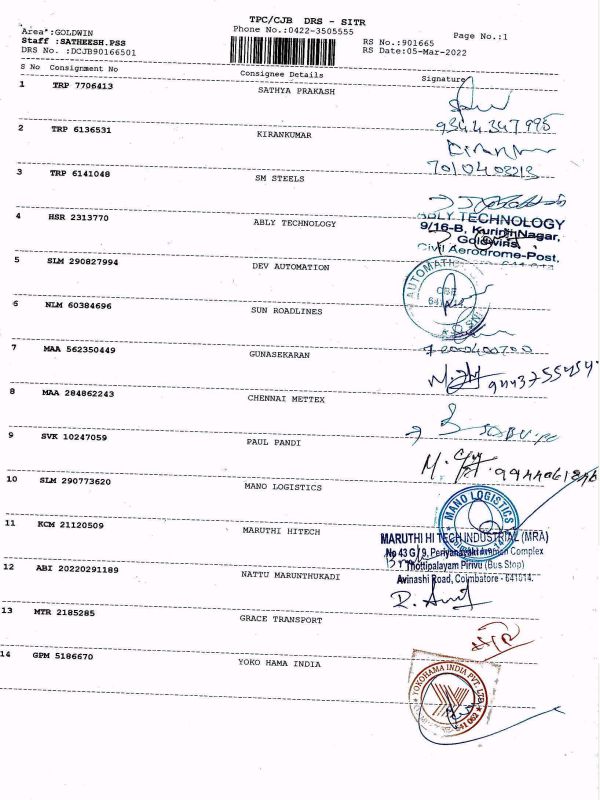 TPC/CJB DRS - SITR
Area*:GOLDWIN Phone No.:0422-3505555 Page No.:1
Staff :SATHEESH.PSS RS No.:901665
DRS No. :DCJB90166501 RS Date:05-Mar-2022
S No Consignment No Consignee Details Signature
1 TRP 7706413 SATHYA PRAKASH
9344347995
2 TRP 6136531 KIRANKUMAR
Kirankumar
7010408213
3 TRP 6141048 SM STEELS
4 HSR 2313770 ABLY TECHNOLOGY
ABLY TECHNOLOGY
9/16-B, Kurinji Nagar,
Goldwins,
Civil Aerodrome-Post,
5 SLM 290827994 DEV AUTOMATION
AUTOMATION
CBE
6 NLM 60384696 SUN ROADLINES
7 MAA 562350449 GUNASEKARAN
8 MAA 284862243 CHENNAI METTEX
9 SVK 10247059 PAUL PANDI
10 SLM 290773620 MANO LOGISTICS
MANO LOGISTICS
11 KCM 21120509 MARUTHI HITECH
MARUTHI HI TECH INDUSTRIAL (MRA)
No 43 G / 9, Periyanayaki Amman Complex
Thottipalayam Pirivu (Bus Stop)
Avinashi Road, Coimbatore - 641014.
12 ABI 20220291189 NATTU MARUNTHUKADI
13 MTR 2185285 GRACE TRANSPORT
14 GPM 5186670 YOKO HAMA INDIA
YOKOHAMA INDIA PVT. LTD